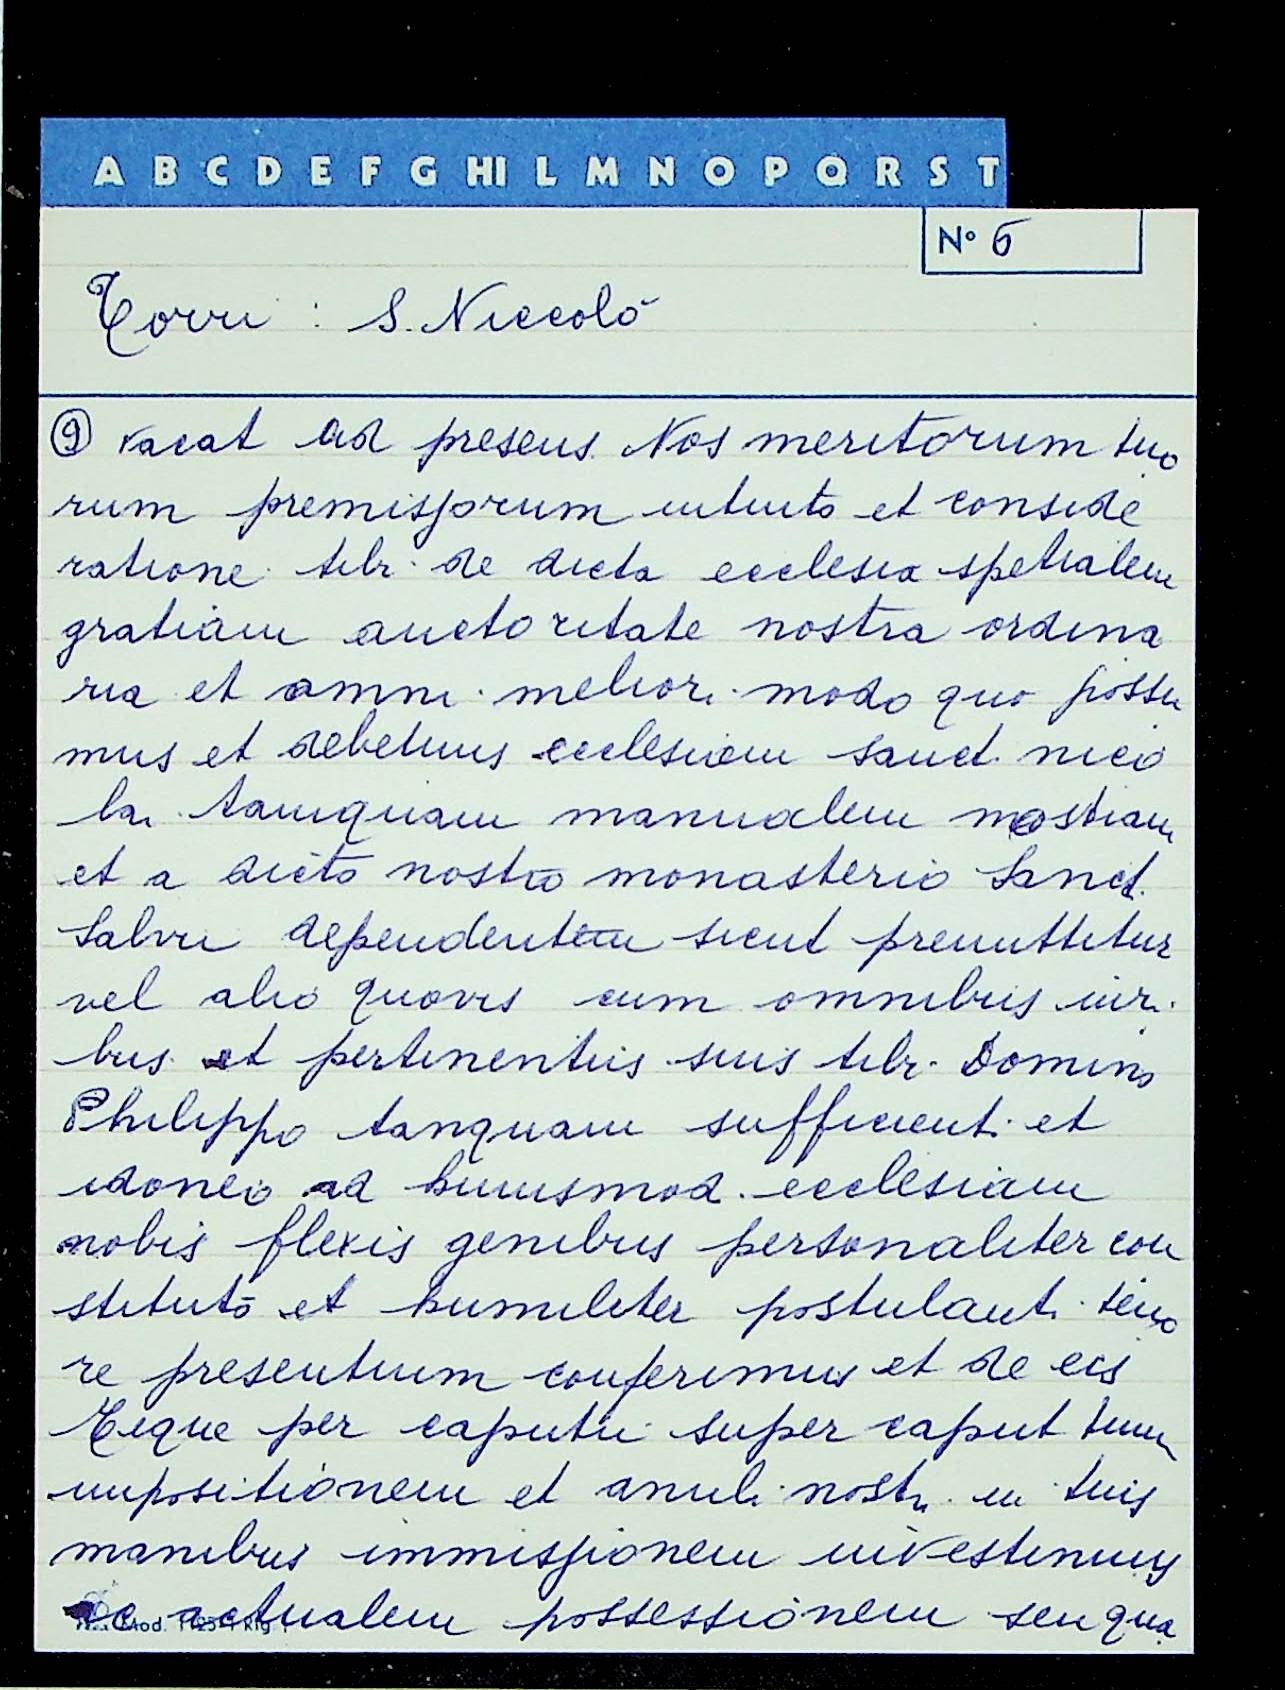 A B C D E F G HI L M N O P Q R S T
N° 6
Torri : S. Niccolò
⑨ vacat ad presens. Nos meritorum tuo
rum premissorum intuito et conside
ratione tibi de dicta ecclesia spetialem
gratiam auctoritate nostra ordina
ria et omni meliori modo quo possu
mus et debemus ecclesiam sanct. nico
lai tamquam manualem nostram
et a dicto nostro monasterio Sanct.
Salvii dependentem sicut premittitur
vel alio quovis cum omnibus iuri
bus et pertinentiis suis tibi Domino
Philippo tanquam sufficienti et
idoneo ad huiusmod. ecclesiam
nobis flexis genibus personaliter con
stituto et humiliter postulanti teno
re presentium conferimus et de eis
Teque per caputii super caput tuum
impositionem et anuli nostri in tuis
manibus immissionem investimus
ac actualem possessionem seu qua
Mod.